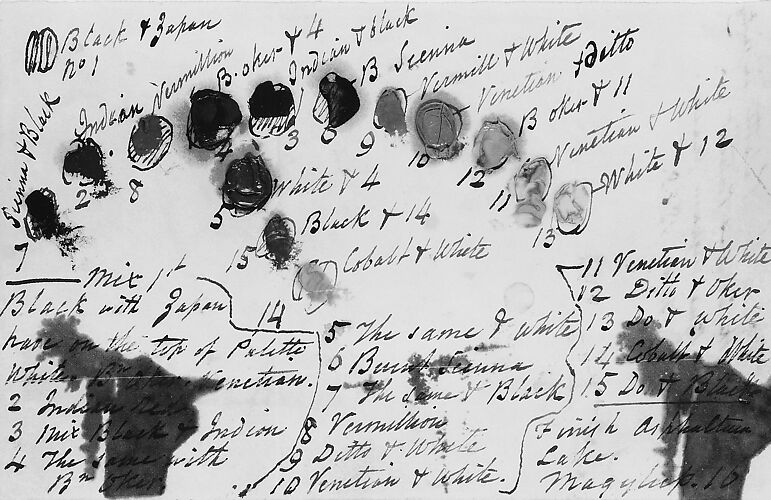 Black & Japan
No 1
Sienna & Black
Indian
Vermillion
B. oker & 4
Indian & black
B Sienna
Vermill & White
Venetian & ditto
B oker & 11
Venetian & White
White & 12
7
2
8
4
3
6
9
10
12
11
13
5
White & 4
15
Black & 14
Cobalt & White
14
Mix 1st
Black with Japan
have on the top of Palette
White. Bn Oker. Venetian.
2 Indian Red
3 Mix Black & Indian
4 The same with
Bn Oker.
5 The same & white
6 Burnt Sienna
7 The same & Black
8 Vermillion
9 Ditto & White
10 Venetian & White.
11 Venetian & White
12 Ditto & Oker
13 Do & White
14 Cobalt & White
15 Do & Black
Finish Asphaltum
Lake.
Magylup. 10